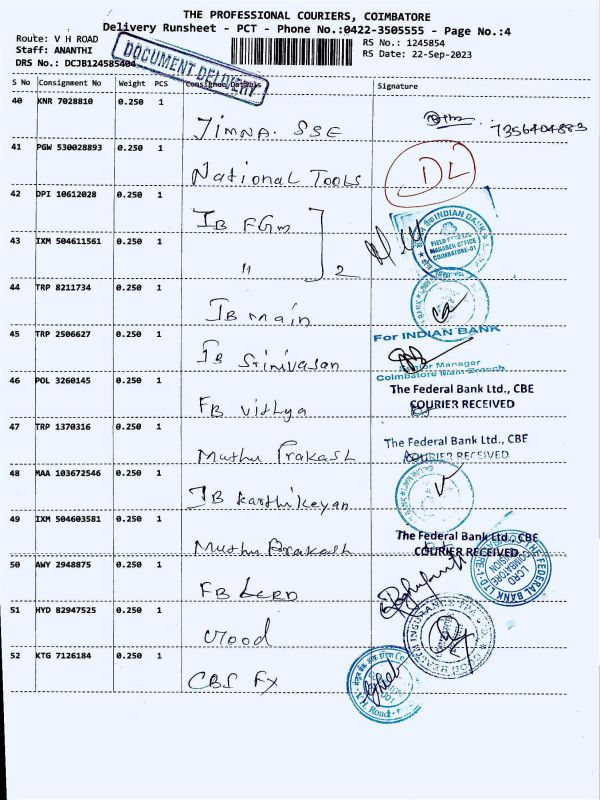 THE PROFESSIONAL COURIERS, COIMBATORE
Delivery Runsheet - PCT - Phone No.:0422-3505555 - Page No.:4
Route: V H ROAD
Staff: ANANTHI
DRS No.: DCJB124585404
DOCUMENT DELIVERY
RS No.: 1245854
RS Date: 22-Sep-2023
S No Consignment No Weight PCS Consignee Details Signature
40 KNR 7028810 0.250 1 Jimna. SSE 7356404883
41 PGW 530028893 0.250 1 National Tools DL
42 DPI 10612028 0.250 1 IB FGM
43 IXM 504611561 0.250 1 " 2
INDIAN BANK
FIELD GENERAL
MANAGER OFFICE
COIMBATORE-01
44 TRP 8211734 0.250 1 IB main
For INDIAN BANK
45 TRP 2506627 0.250 1 IB Srinivasan
Senior Manager
Coimbatore Main Branch
46 POL 3260145 0.250 1 FB Vithya
The Federal Bank Ltd., CBE
COURIER RECEIVED
47 TRP 1370316 0.250 1 Muthu Prakash
The Federal Bank Ltd., CBE
COURIER RECEIVED
48 MAA 103672546 0.250 1 IB Karthikeyan
49 IXM 504603581 0.250 1 Muthu Prakash
The Federal Bank Ltd., CBE
COURIER RECEIVED
50 AWY 2948875 0.250 1 FB LCRD
THE FEDERAL BANK LTD
LCRD
COIMBATORE
DIVISION
51 HYD 82947525 0.250 1
52 KTG 7126184 0.250 1 CBS FX
V.H. Road